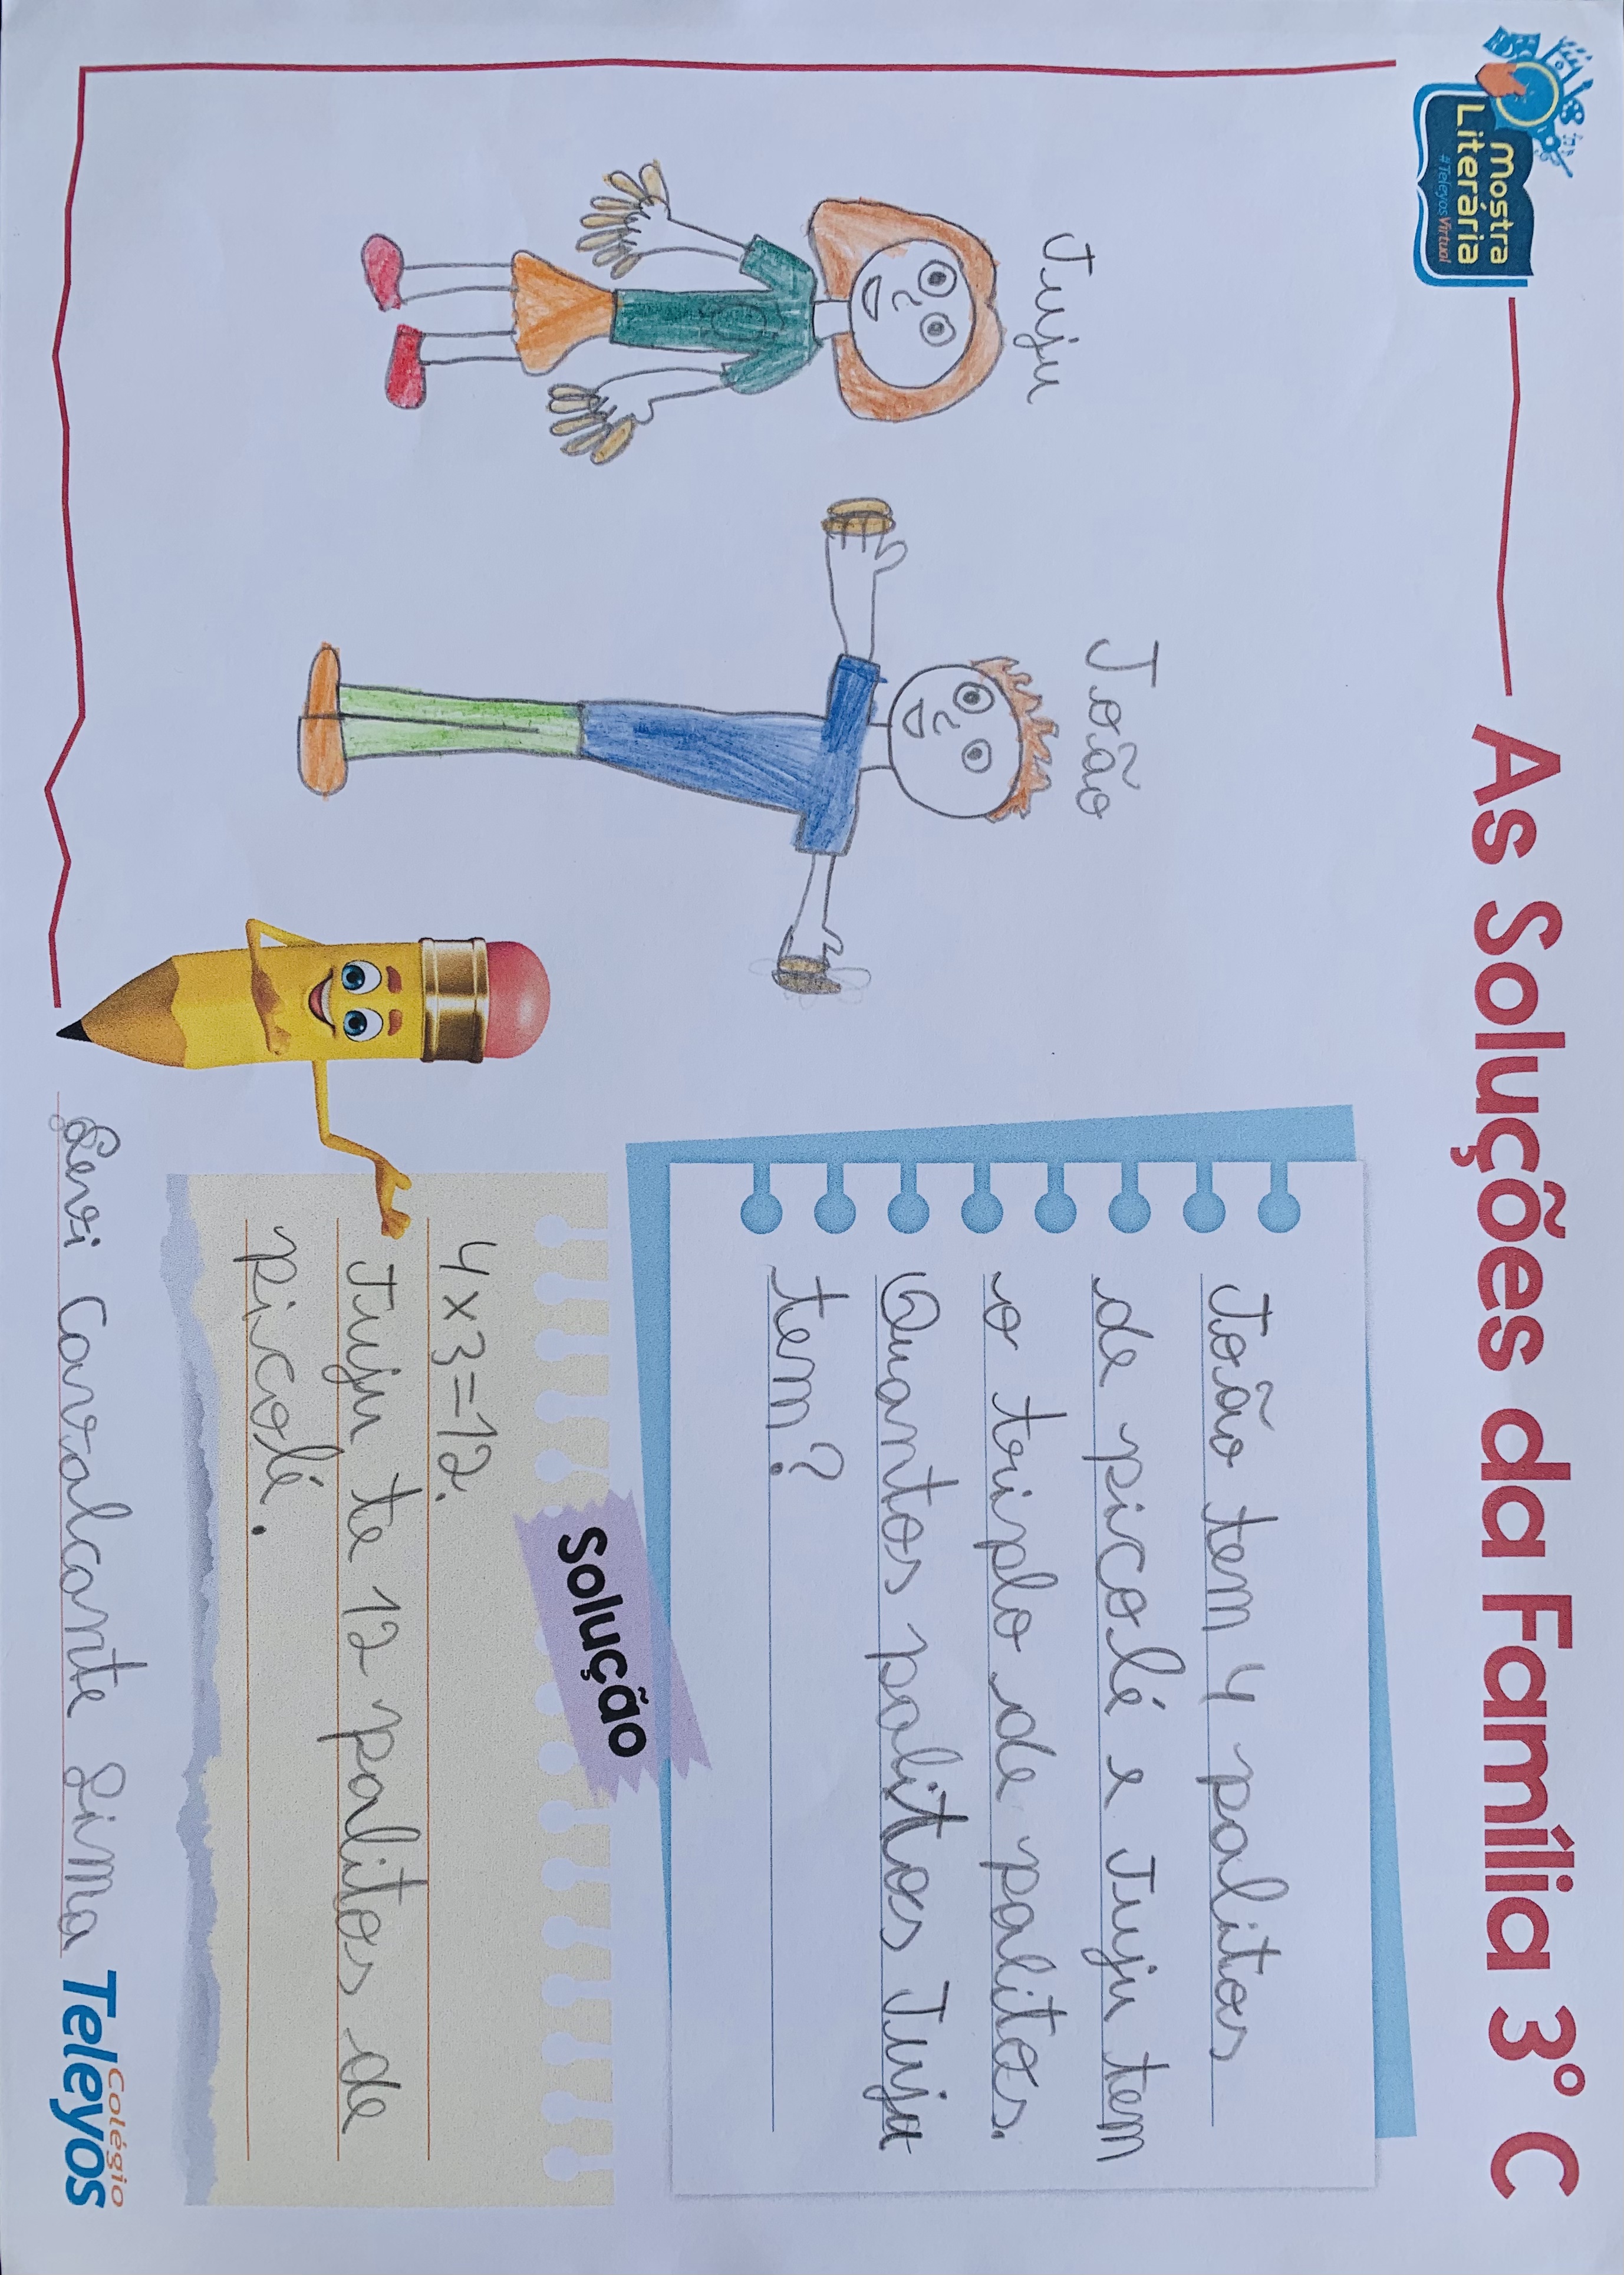 Mostra
Literária
#TeleyosVirtual
As Soluções da Família 3° C
Juju
João
João tem 4 palitos
de picolé e Juju tem
o triplo de palitos.
Quantos palitos Juju
tem?
Solução
4x3=12.
Juju te 12 palitos de
picolé.
Levi Cavalcante Lima
Colégio
Teleyos